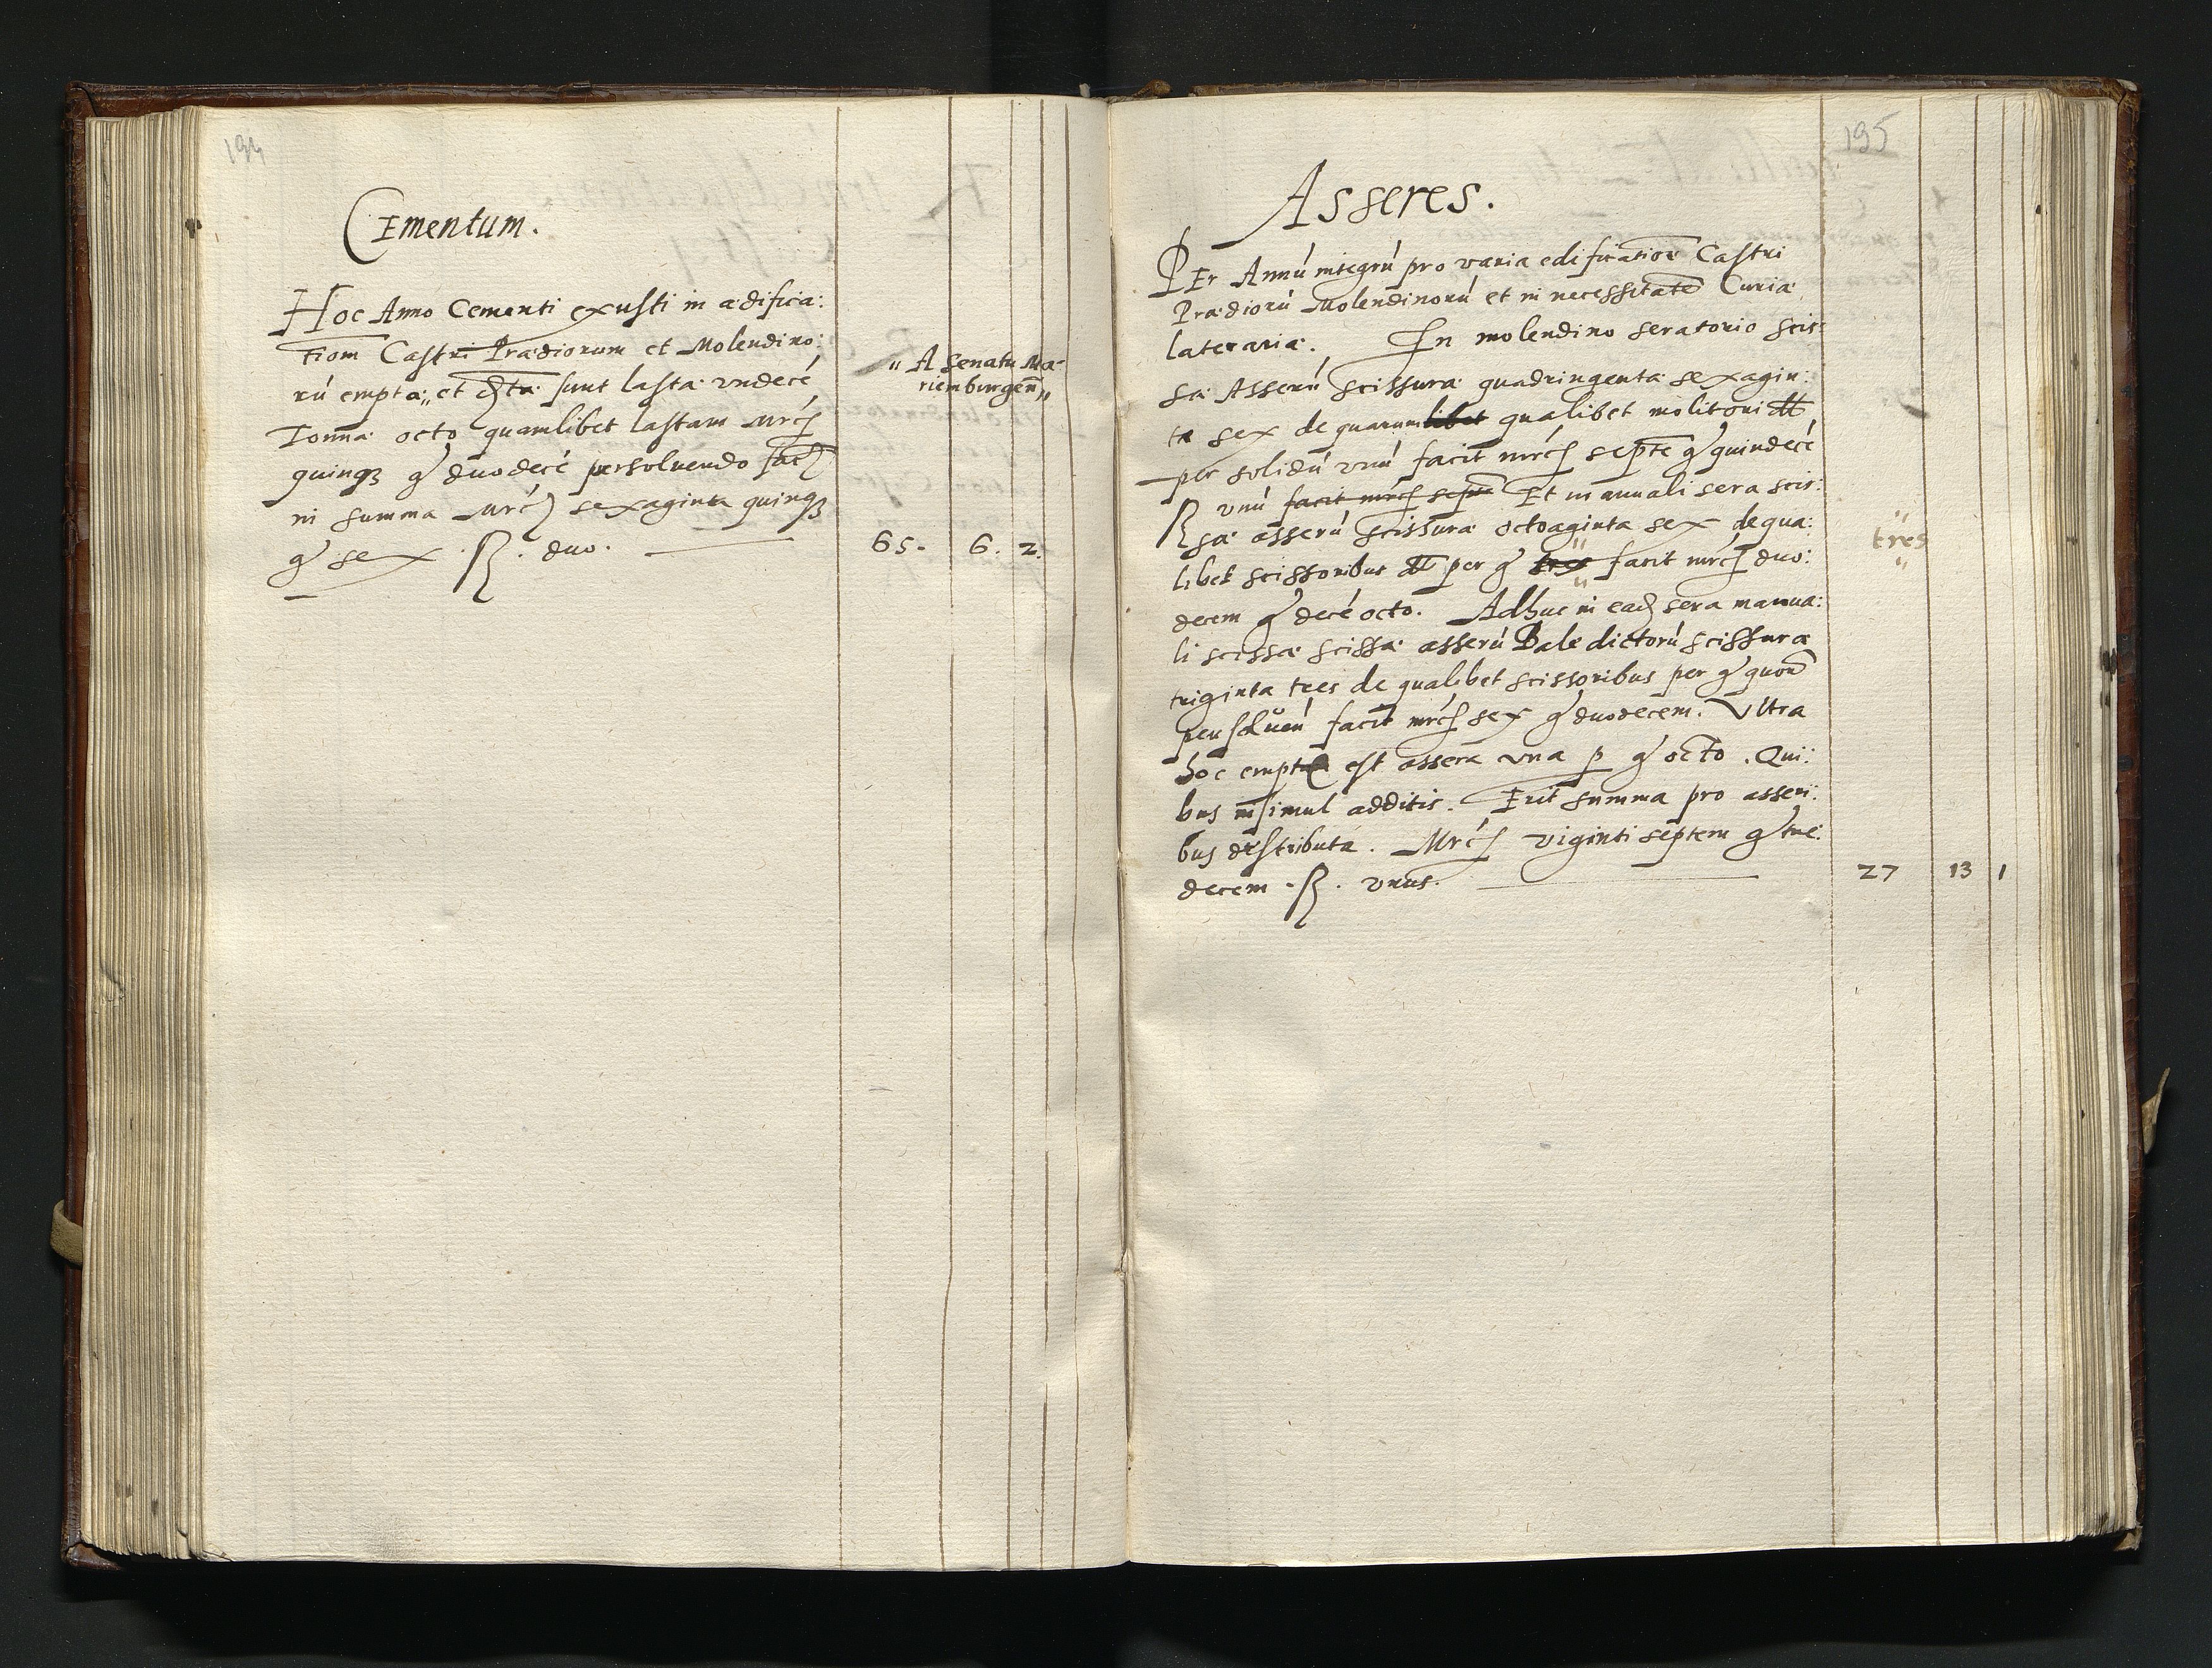 194
Cementum.
Hoc Anno Cementi exusti in ædifica:
tiom Castri Prædiorum et Molendino:
rú empta „ et sunt lasta undecé
Tonna octo quamlibet lastam Mrc
quinq3 g duodecé persoluendo fac
in summa Mrc sexaginta quinq3
g sex . ß . duo.
„ A senatu Ma-
rienburgeñ „
65. 6. 2.
195
Asseres.
PEr Annú integrú pro varia edificatioe Castri
Prædiorú Molendinorú et in necessitate Curiæ
laterariæ. In molendino seratorio scis:
sæ Asserú scissuræ quadringentæ sexagin:
ta sex de quarum libet qualibet molitori dt
per solidú unú facit mrc septe g quindecé
ß unú facit mrc septe Et in anuali sera scis:
sæ asserú scissuræ octoaginta sex de qua:
libet scissoribus dt per g tres facit mrc duo:
„ tres „
decem g decé octo. Adhuc in ead sera manua:
li scissa scissæ asserú Bale dictorú scissuræ
triginta tres de qualibet scissoribus per g
persoluéú facit mrc sex g duodecem. Ultra
hoc empta est assera una p g octo . Qui:
bus insimul additis. Erit summa pro asseri:
bus distributa. Mrc viginti septem g tre:
decem . ß . unus.
27 13 1